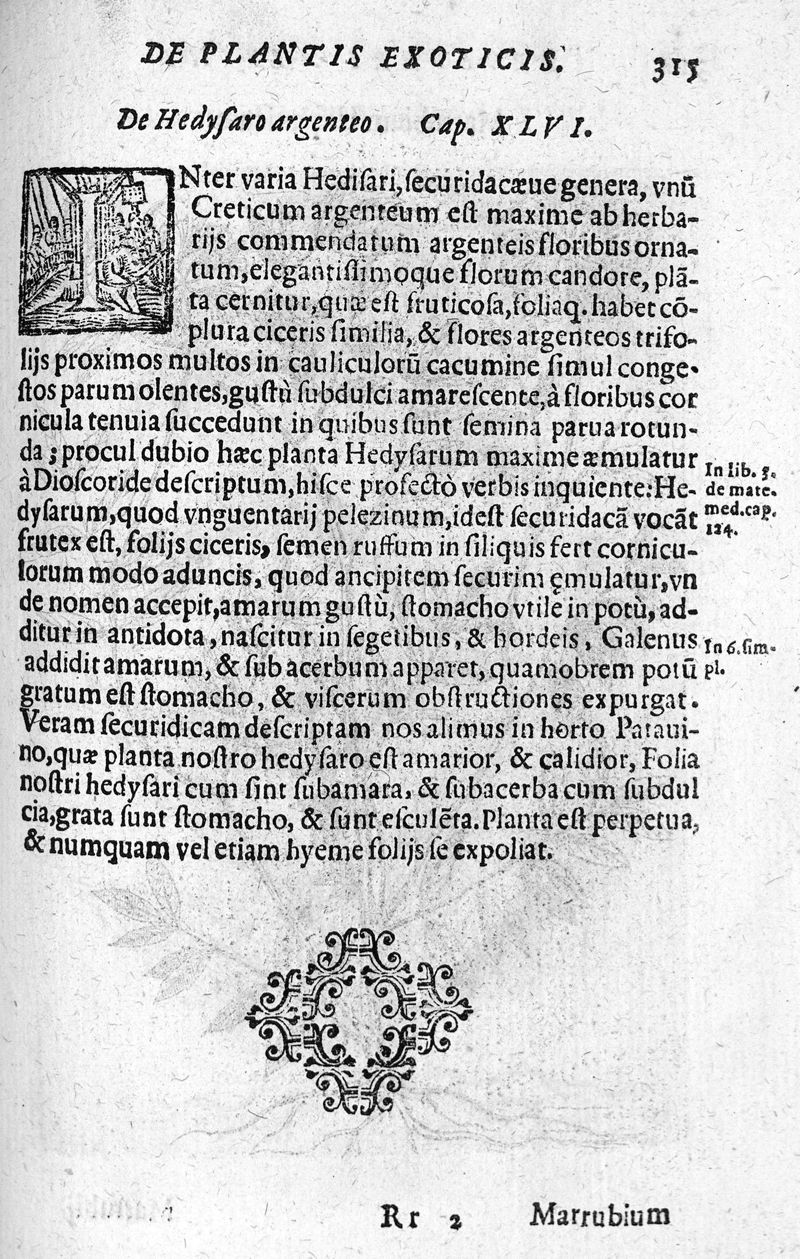 DE PLANTIS EXOTICIS. 315
De Hedyſaro argenteo. Cap. XLVI.
INter varia Hediſari, ſecuridacæue genera, vnũ
Creticum argenteum eſt maxime ab herba-
rijs commendatum argenteis floribus orna-
tum, elegantiſſimoque florum candore, plã-
ta cernitur, quæ eſt fruticoſa, foliaq. habet cõ-
plura ciceris ſimilia, & flores argenteos trifo-
lijs proximos multos in cauliculorũ cacumine ſimul conge-
ſtos parum olentes, guſtù ſubdulci amareſcente, à floribus cor
nicula tenuia ſuccedunt in quibus ſunt ſemina parua rotun-
da; procul dubio hæc planta Hedyſarum maxime æmulatur
à Dioſcoride deſcriptum, hiſce profectò verbis inquiente: He-
In lib. 3.
de mate.
dyſarum, quod vnguentarij pelezinum, ideſt ſecuridacã vocãt
med. cap.
124.
frutex eſt, folijs ciceris, ſemen ruffum in ſiliquis fert cornicu-
lorum modo aduncis, quod ancipitem ſecurim ęmulatur, vn
de nomen accepit, amarum guſtù, ſtomacho vtile in potù, ad-
ditur in antidota, naſcitur in ſegetibus, & hordeis, Galenus
In 6. ſim-
pl.
addidit amarum, & ſubacerbum apparet, quamobrem potũ
gratum eſt ſtomacho, & viſcerum obſtructiones expurgat.
Veram ſecuridicam deſcriptam nos alimus in horto Pataui-
no, quæ planta noſtro hedyſaro eſt amarior, & calidior, Folia
noſtri hedyſari cum ſint ſubamara, & ſubacerba cum ſubdul
cia, grata ſunt ſtomacho, & ſunt eſculẽta. Planta eſt perpetua,
& numquam vel etiam hyeme folijs ſe expoliat.
Rr 2 Marrubium